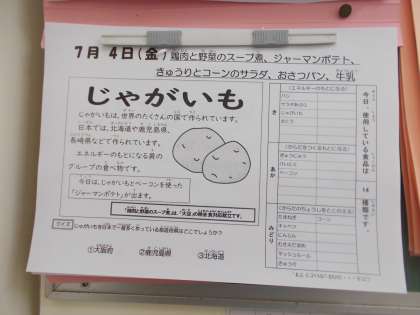 7月 4日(金) 鶏肉と野菜のスープ煮、ジャーマンポテト、
きゅうりとコーンのサラダ、おさつパン、牛乳
じゃがいも
じゃがいもは、世界のたくさんの国で作られています。
日本では、北海道や鹿児島県、
長崎県などで作られています。
エネルギーのもとになる黄の
グループの食べ物です。
今日は、じゃがいもとベーコンを使った
「ジャーマンポテト」が出ます。
「鶏肉と野菜のスープ煮」は、「大豆」の
クイズ
じゃがいもを日本で一番多く作っている都道府県はどこでしょうか?
①大阪府 ②鹿児島県 ③北海道
今日、使用している食品は 14 種類です。
き
(エネルギーのもとになる)
パン
さつまいも
じゃがいも
あか
(からだをつくるもとになる)
ぎゅうにゅう
とりにく
ベーコン
みどり
(からだのちょうしをととのえる)
たまねぎ コーン
キャベツ
にんじん
マッシュルーム
きゅうり